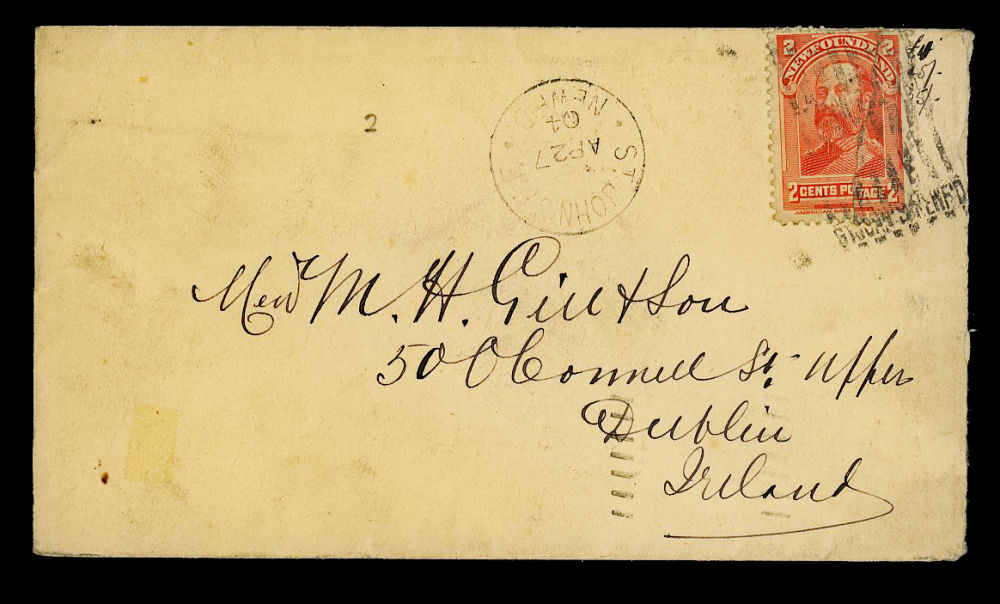 2 2
NEWFOUNDLAND
2 CENTS POSTAGE 2
ST. JOHN'S
NEWF'D
AP 27
04
2
Mess M. H. Gill & Son
50 O'Connell St. Upper
Dublin
Ireland